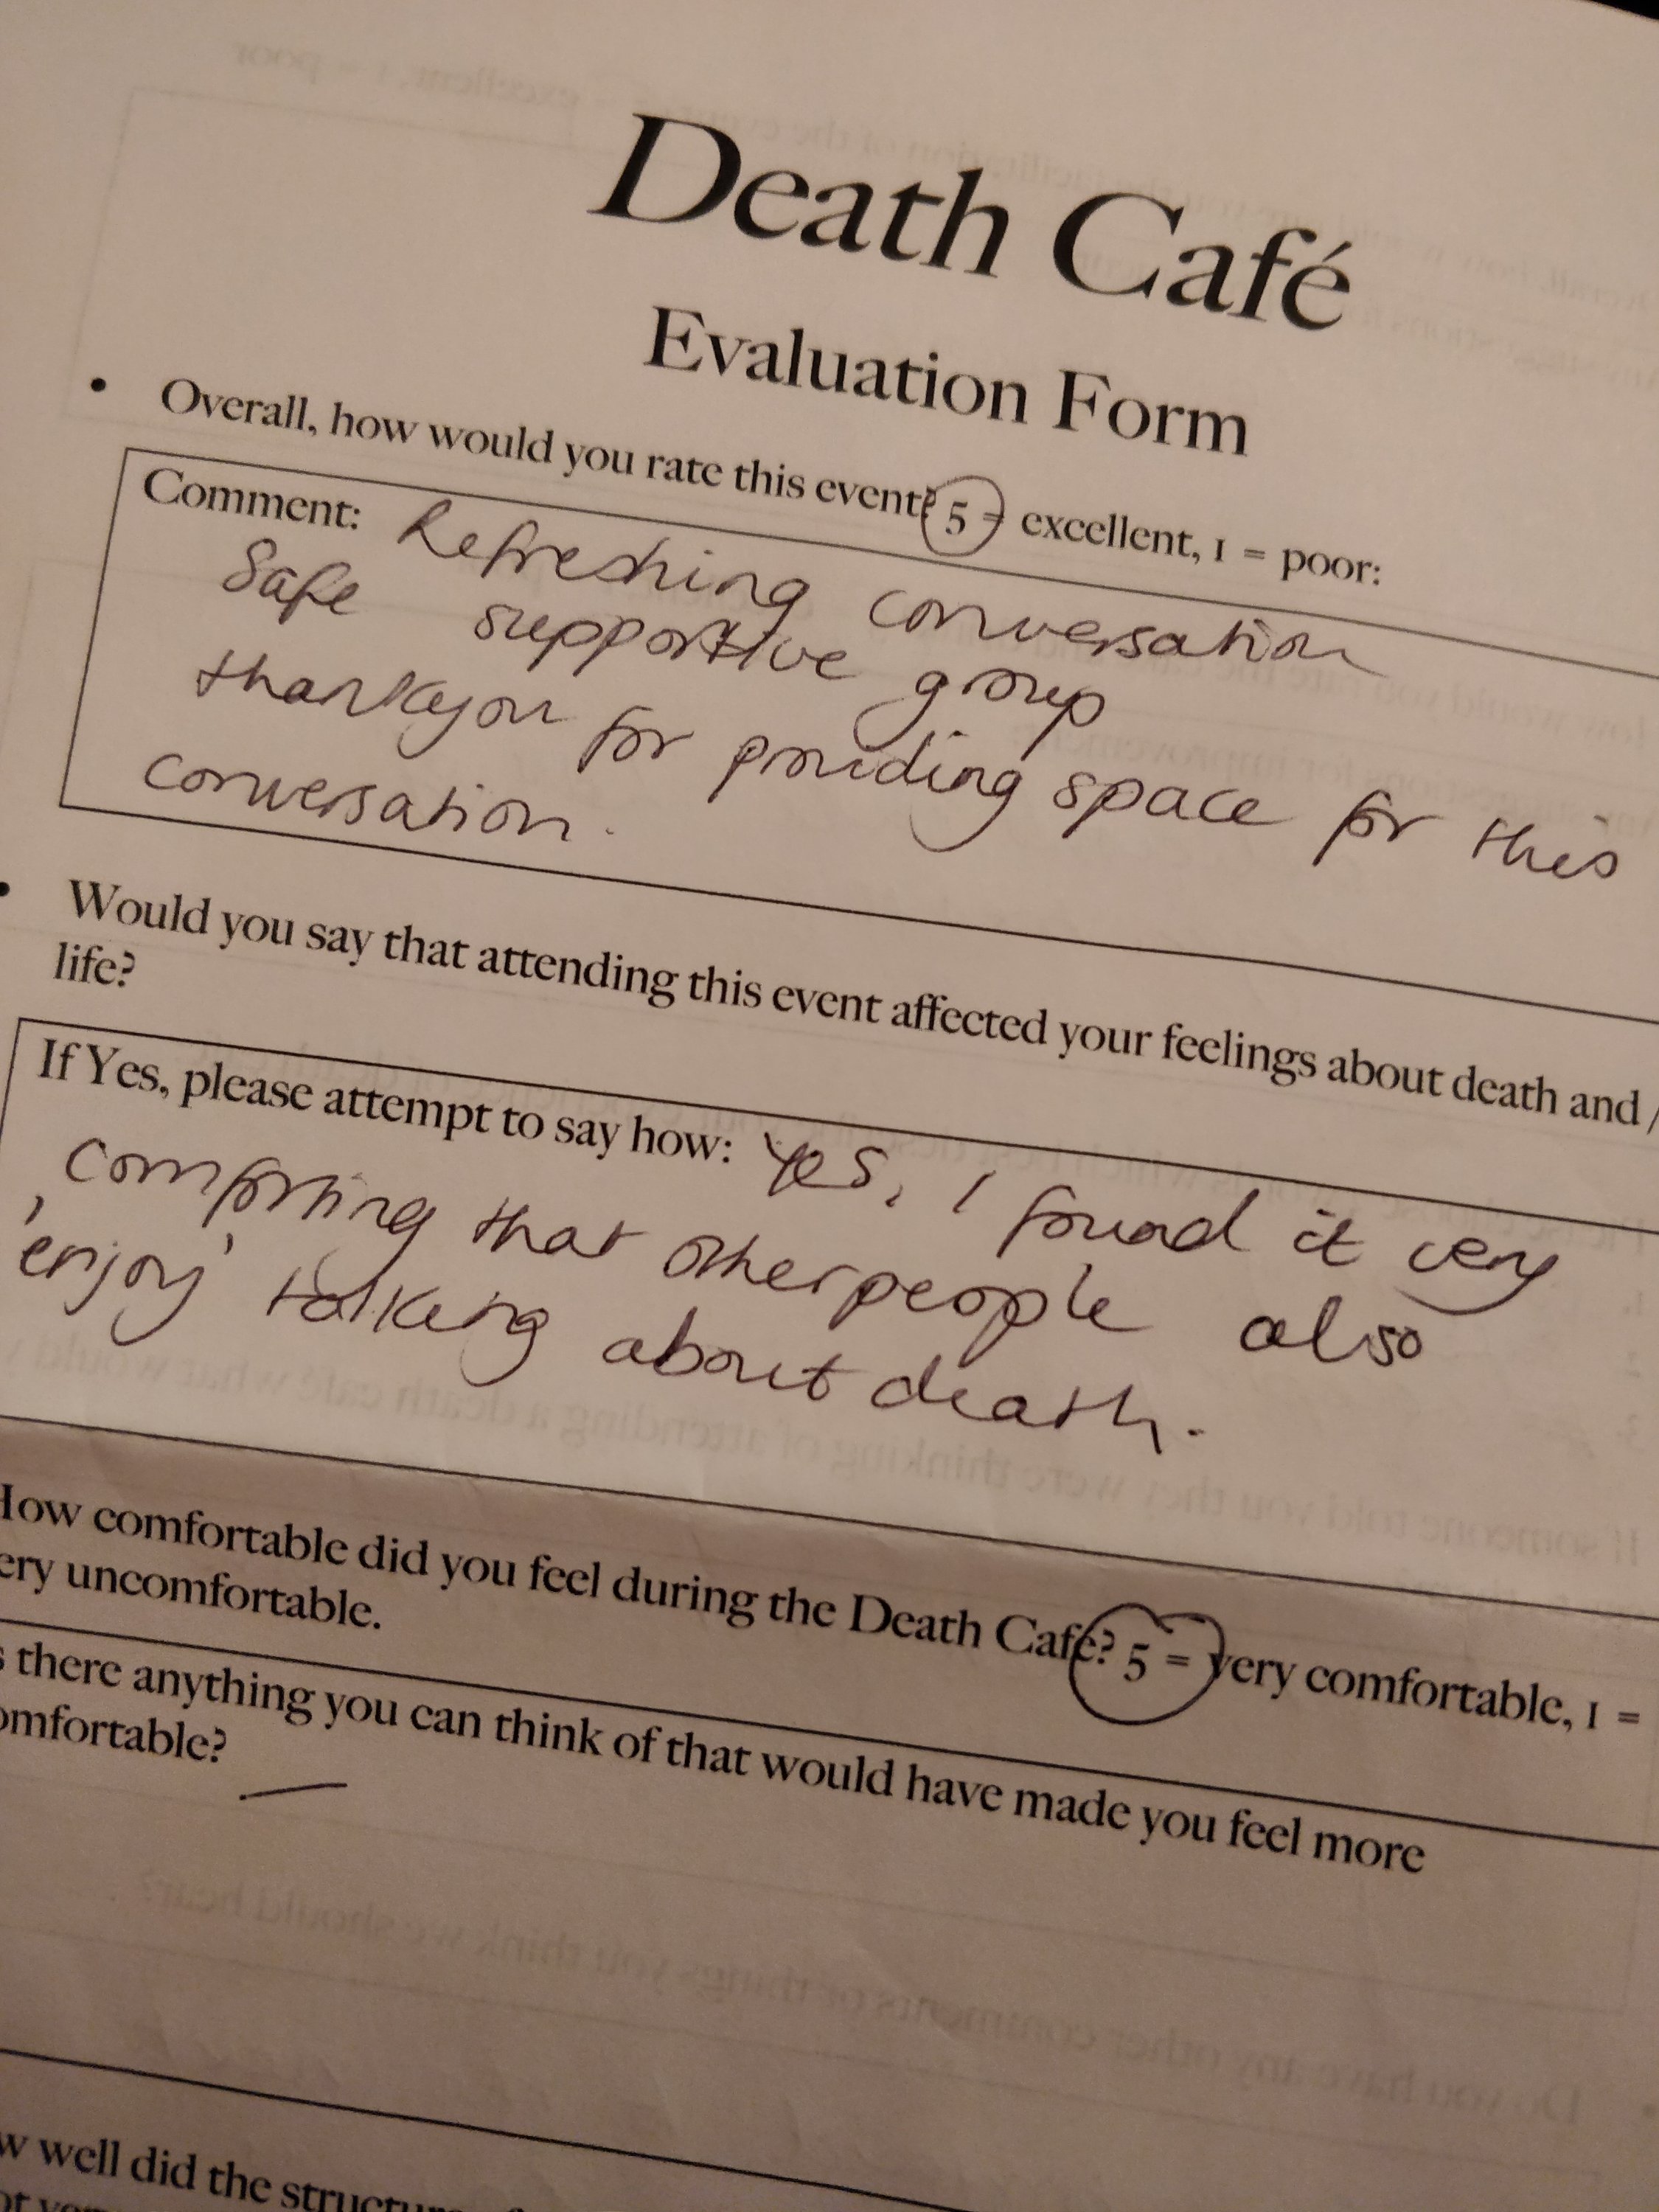 Death Café
Evaluation Form
• Overall, how would you rate this event? 5 = excellent, 1 = poor:
Comment: Refreshing conversation
Safe supportive group
thankyou for providing space for this
conversation.
• Would you say that attending this event affected your feelings about death and /
life?
If Yes, please attempt to say how: Yes, I found it very
comforting that other people also
'enjoy' talking about death.
How comfortable did you feel during the Death Café? 5 = very comfortable, 1 =
ery uncomfortable.
s there anything you can think of that would have made you feel more
omfortable? —
w well did the structure